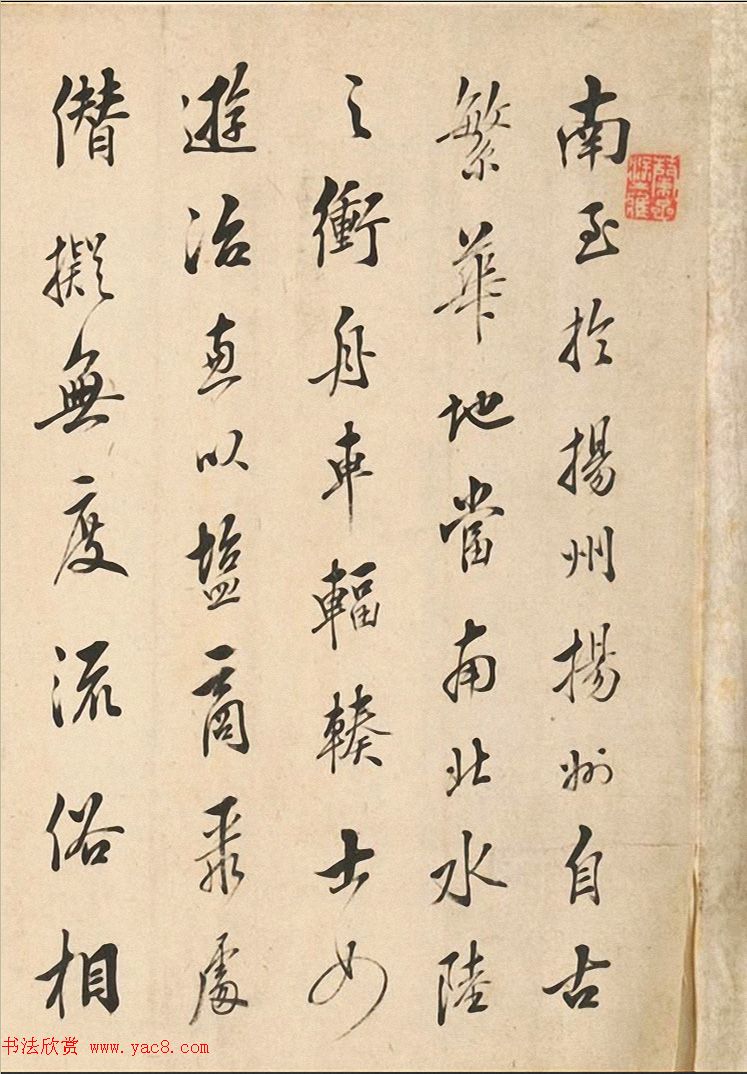 南至於揚州揚州自古
繁華地當南北水陸
之衝舟車輻輳士女
遊冶兼以鹽商聚處
僭擬無度流俗相
书法欣赏 www.yac8.com